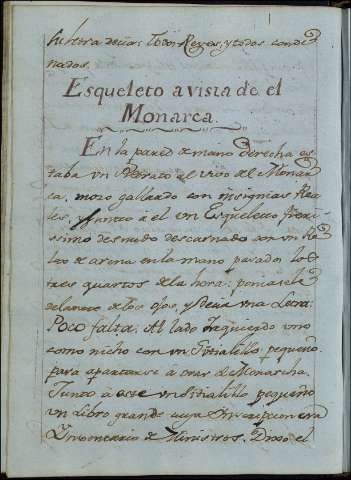 letra decia: Todos Reyes, y todos conde
nados.
Esqueleto a vista de el
Monarca.
En la pared de mano derecha es
taba un Retrato al vivo del Monar
ca, mozo gallardo con insignias Rea
les, y junto à èl un Esqueleto fierì
ssimo desnudo descarnado con un Re
lox de arena en la mano pasados los
tres quartos de la hora: poniasela
delante de los ojos, y decia una Letra:
Poco falta: Al lado Izquierdo uno
como nicho con un Sitialillo pequeño
para apartarse à orar el Monarcha.
Junto à este un Sitialillo pequeño
un Libro grande cuya Inscripcion era
Ynventario de Ministros. Dixo el